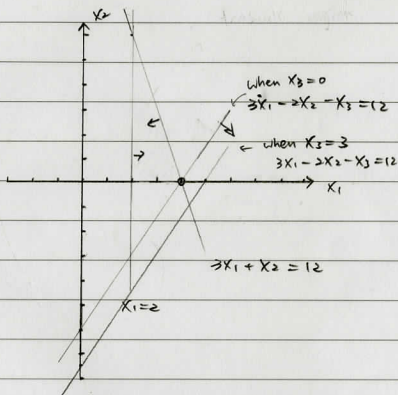 x₂
when x₃=0
3x₁-2x₂-x₃=12
when x₃=3
3x₁-2x₂-x₃=12
x₁
3x₁+x₂=12
x₁=2